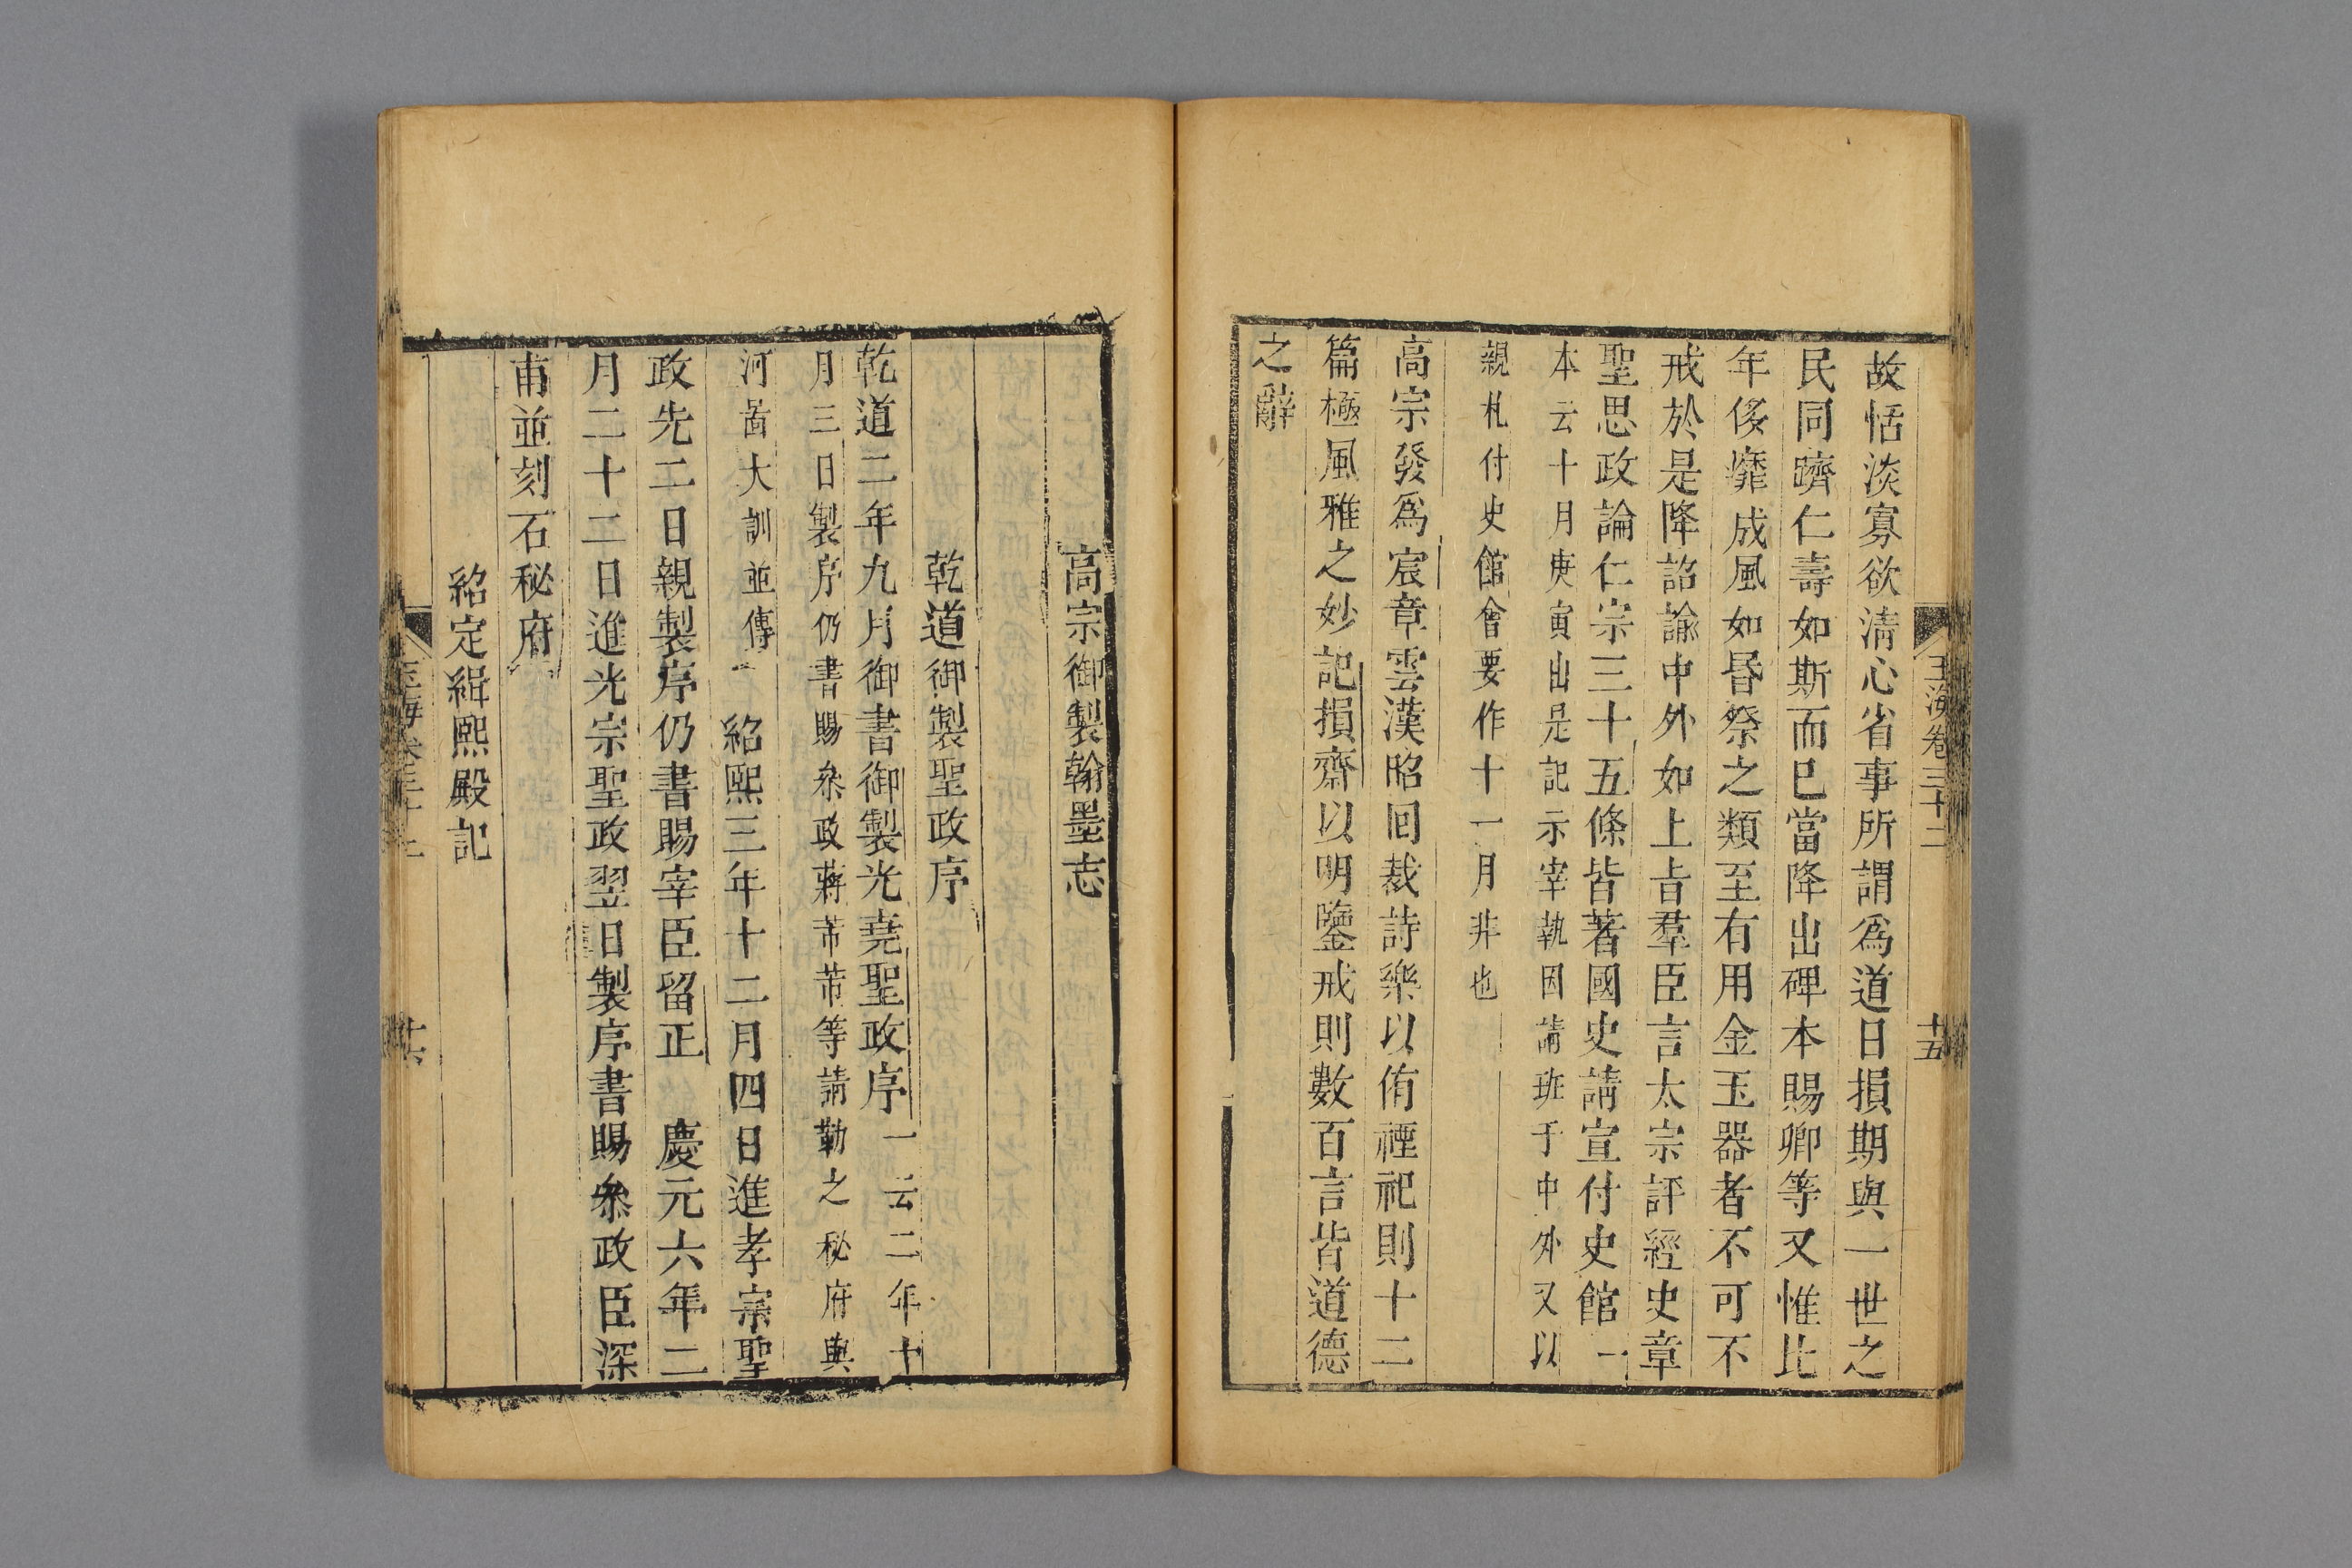 玉海卷三十二
十五
故恬淡寡欲淸心省事所謂爲道日損期與一世之
民同躋仁壽如斯而已當降出碑本賜卿等又惟比
年侈靡成風如昏祭之類至有用金玉器者不可不
戒於是降詔諭中外如上㫖羣臣言太宗評經史章
聖思政論仁宗三十五條皆著國史請宣付史館一
本云十月庚寅出是記示宰執因請班于中外又以
親札付史館會要作十一月非也
高宗發爲宸章雲漢昭回裁詩樂以侑禋祀則十二
篇極風雅之妙記損齋以明鑒戒則數百言皆道德
之辭
高宗御製翰墨志
乾道御製聖政序
乾道二年九月御書御製光堯聖政序一云二年十
月三日製序仍書賜叅政蔣芾芾等請勒之秘府與
河啚大訓並傳
紹熙三年十二月四日進孝宗聖
政先二日親製序仍書賜宰臣留正
慶元六年二
月二十二日進光宗聖政翌日製序書賜叅政臣深
甫並刻石秘府
紹定緝熙殿記
玉海卷三十二
十六